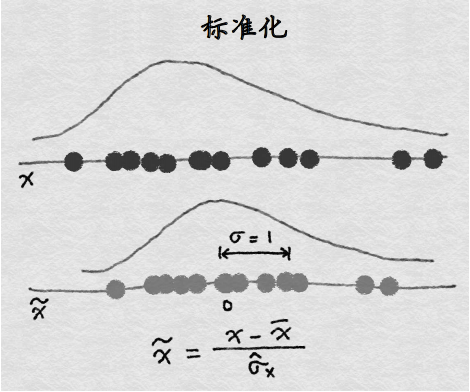 标准化
x
σ = 1
x̃
0
x̃ = (x - x̄) / σ̂ₓ